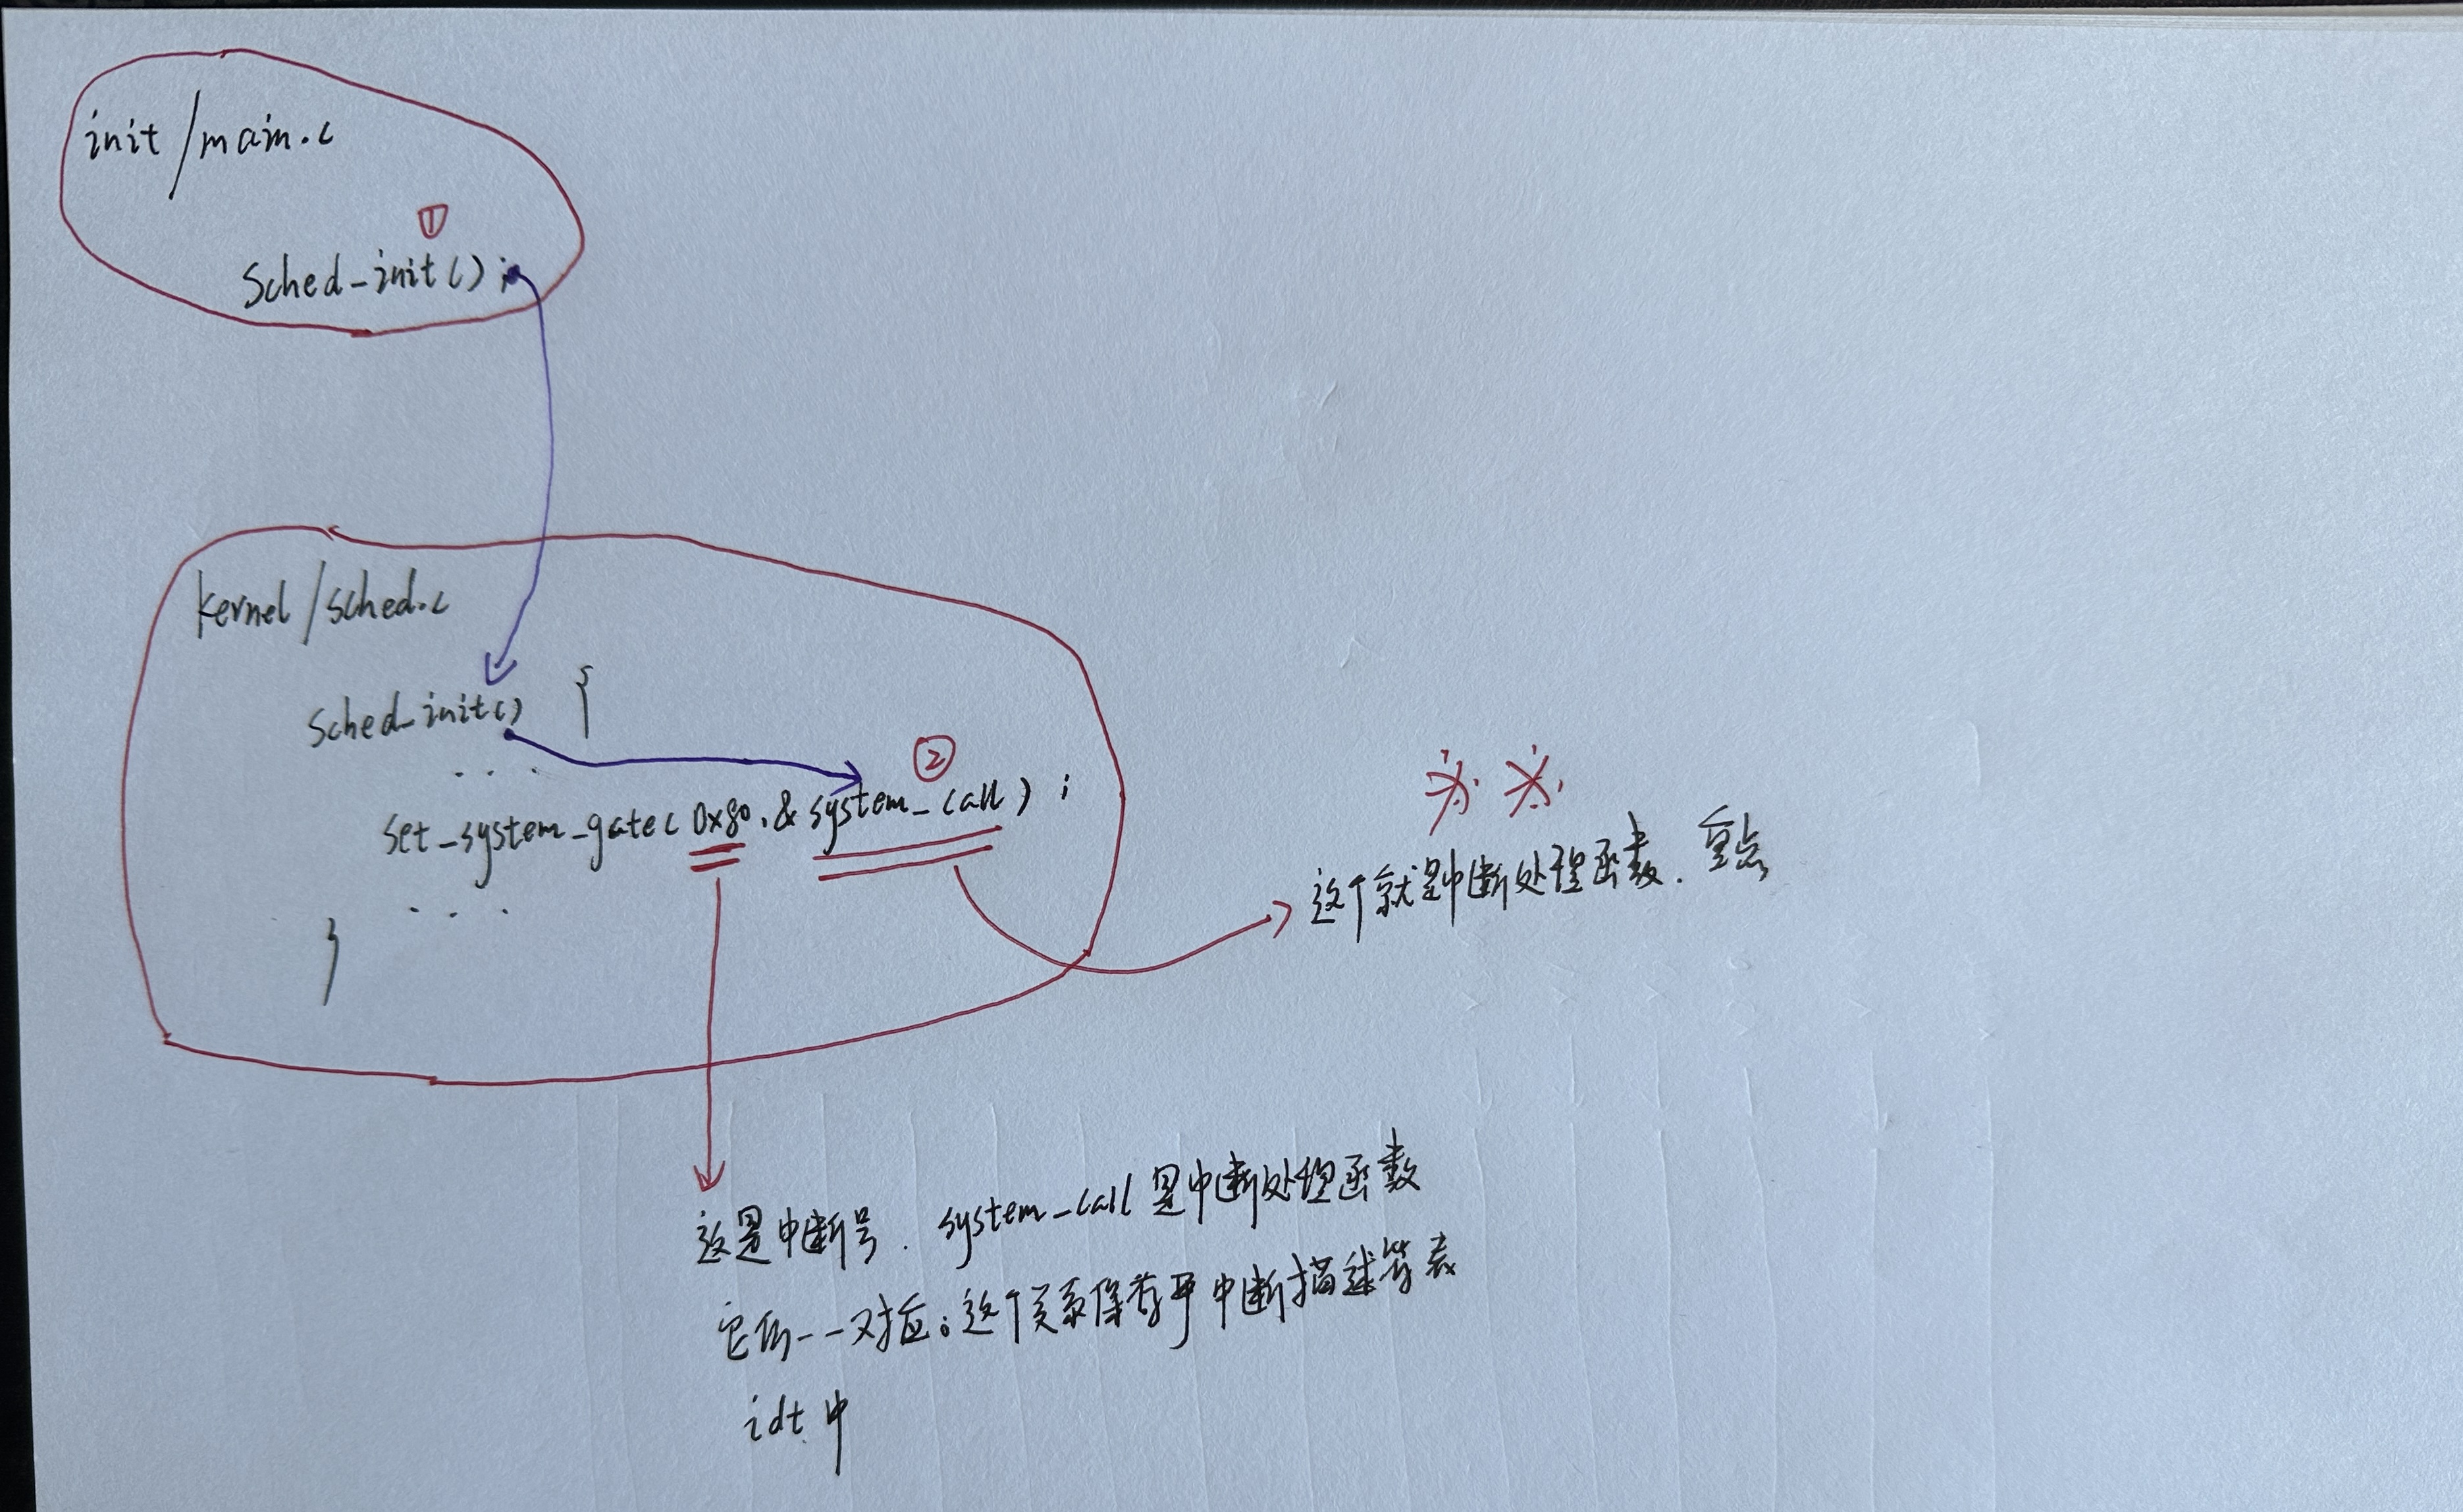 init/main.c
①
Sched_init();
kernel/sched.c
Sched_init() {
...
②
set_system_gate(0x80,&system_call);
...
}
※※
这个就是中断处理函数.重点
这是中断号.system_call是中断处理函数
它们一一对应;这个关系保存于中断描述符表
idt中